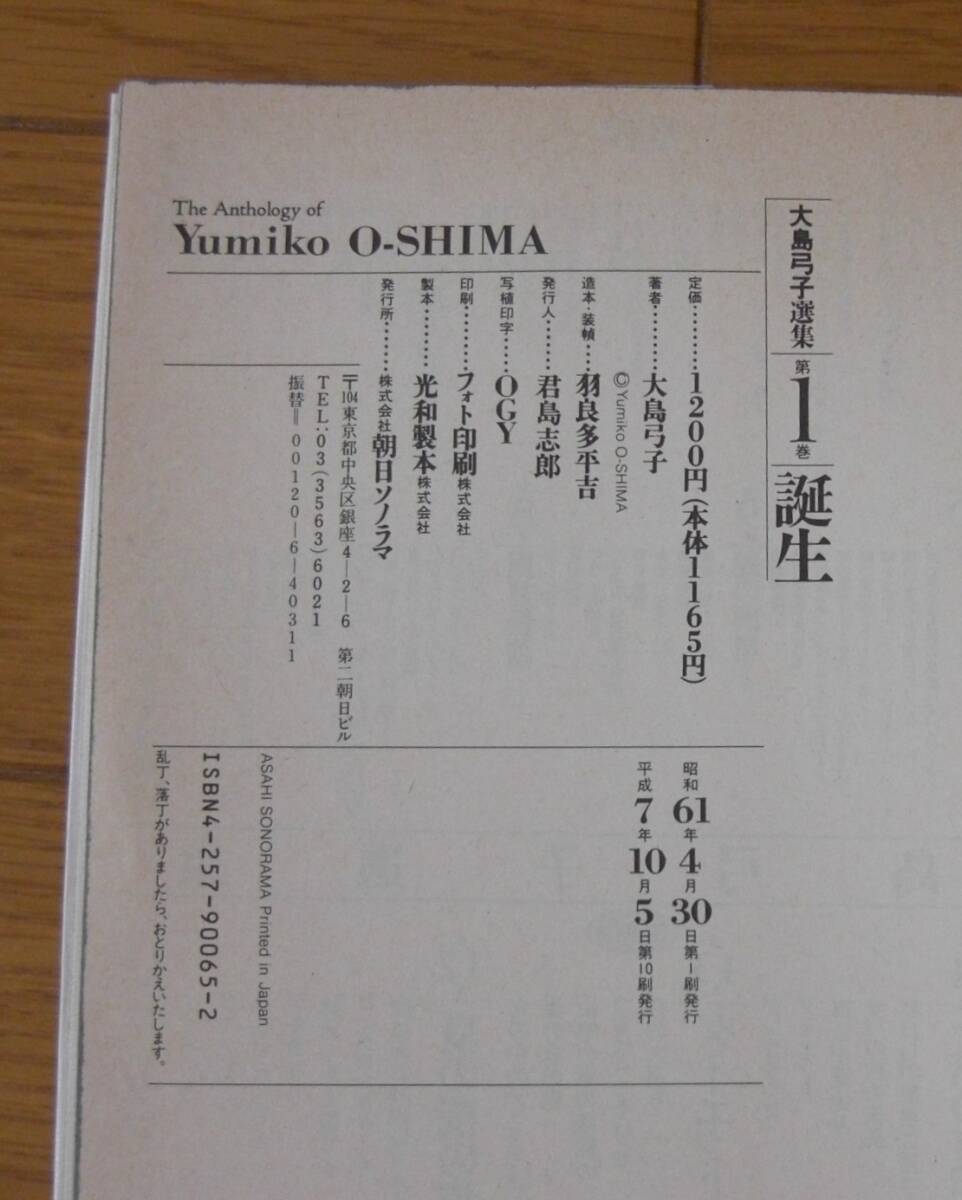 大島弓子選集
第1巻
誕生
The Anthology of
Yumiko O-SHIMA
定価………1200円(本体1165円)
著者………大島弓子
©Yumiko O-SHIMA
造本・装幀…羽良多平吉
発行人……君島志郎
写植印字……OGY
印刷………フォト印刷株式会社
製本………光和製本株式会社
発行所……株式会社朝日ソノラマ
〒104東京都中央区銀座4―2―6 第二朝日ビル
TEL:03(3563)6021
振替=00120―6―40311
昭和61年4月30日第1刷発行
平成7年10月5日第10刷発行
ASAHI SONORAMA Printed in Japan
ISBN4-257-90065-2
乱丁、落丁がありましたら、おとりかえいたします。